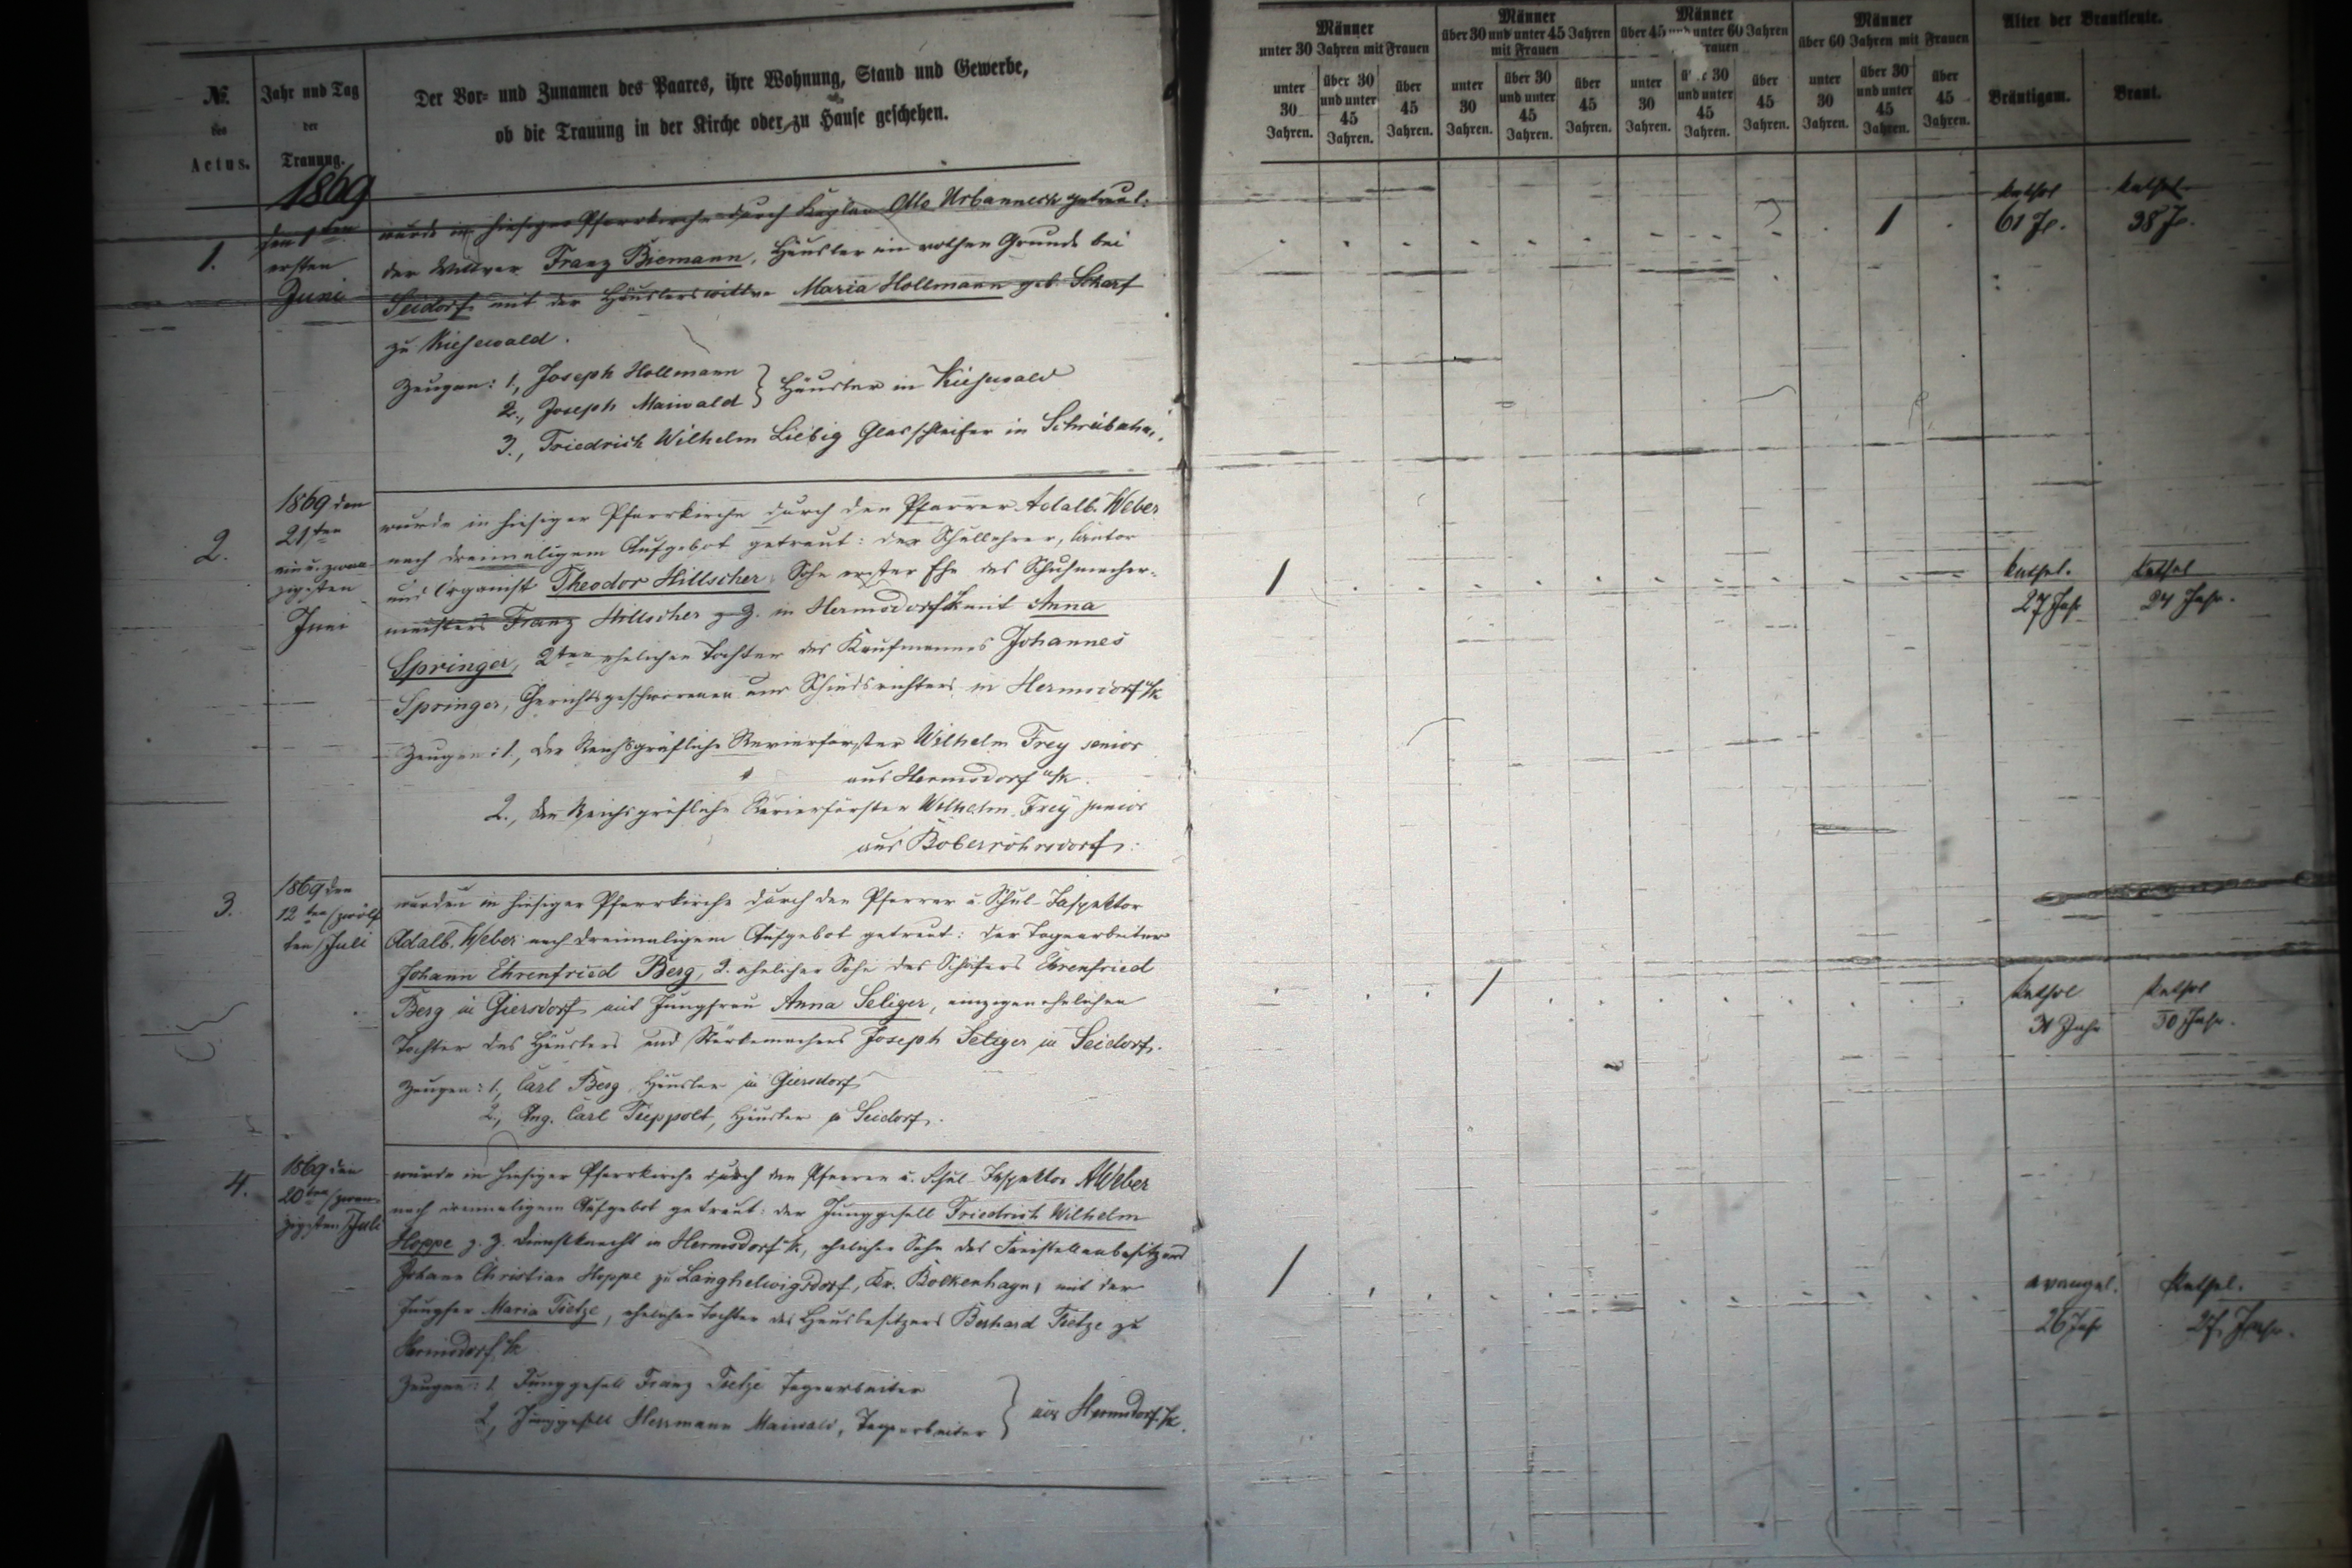 № des Actus.
Jahr und Tag der Trauung.
Der Vor- und Zunamen des Paares, ihre Wohnung, Stand und Gewerbe,
ob die Trauung in der Kirche oder zu Hause geschehen.
Männer unter 30 Jahren mit Frauen
unter 30 Jahren.
über 30 und unter 45 Jahren.
über 45 Jahren.
Männer über 30 und unter 45 Jahren mit Frauen
unter 30 Jahren.
über 30 und unter 45 Jahren.
über 45 Jahren.
Männer über 45 und unter 60 Jahren Frauen
unter 30 Jahren.
30 und unter 45 Jahren.
über 45 Jahren.
Männer über 60 Jahren mit Frauen
unter 30 Jahren.
über 30 und unter 45 Jahren.
über 45 Jahren.
Alter der Brautleute.
Bräutigam.
Braut.
1869
1.
den 1ten
ersten
Juni
wurde in hiesiger Pfarrkirche durch Kaplan Otto Urbanneck getraut:
der Wittwer Franz Biemann, Häusler im rothen Grunde bei
Seidorf mit der Häuslerswittwe Maria Hollmann geb. Scharf
zu Kiesewald.
Zeugen: 1., Joseph Hollmann
2., Joseph Maiwald } Häusler in Kiesewald
3., Friedrich Wilhelm Liebig Glasschleifer in
1
kathol
61 J.
kathol
38 J.
2.
1869 den
21ten
ein u. zwan
zigsten
Juni
wurde in hiesiger Pfarrkirche durch den Pfarrer Adalb. Weber
nach dreimaligem Aufgebot getraut: der Schullehrer, Cantor
und Organist Theodor Hillscher, Sohn erster Ehe des Schuhmacher-
meisters Franz Hillscher z. Z. in Hermsdorf u/k mit Anna
Springer, 2ten ehelichen Tochter des Kaufmannes Johannes
Springer, Gerichtsgeschworenen und Schiedsrichters in Hermsdorf u/k
Zeugen: 1., der Reichsgräfliche Revierförster Wilhelm Frey senior
aus Hermsdorf u/k.
2., der Reichsgräfliche Revierförster Wilhelm Frey junior
aus Boberröhrsdorf.
1
kathol.
27 Jahr
kathol
24 Jahr.
3.
1869 den
12ten (zwölf
ten) Juli
wurden in hiesiger Pfarrkirche durch den Pfarrer u. Schul-Inspektor
Adalb. Weber nach dreimaligem Aufgebot getraut: der Tagearbeiter
Johann Ehrenfried Berg, 2. ehelicher Sohn des Schäfers Ehrenfried
Berg in Giersdorf mit Jungfrau Anna Seliger, einzigen ehelichen
Tochter des Häuslers und Stärkemachers Joseph Seliger in Seidorf.
Zeugen: 1., Carl Berg Häusler in Giersdorf
2., Aug. Carl Tieppolt, Häusler in Seidorf.
1
kathol
31 Jahr
kathol
30 Jahr.
4.
1869 den
20ten (zwan-
zigsten) Juli
wurde in hiesiger Pfarrkirche durch den Pfarrer u. Schul-Inspektor A Weber
nach dreimaligem Aufgebot getraut: der Junggesell Friedrich Wilhelm
Hoppe z. Z. Dienstknecht in Hermsdorf u/k, ehelicher Sohn des Freistellenbesitzers
Johann Christian Hoppe zu Langhelwigsdorf, Kr. Bolkenhayn, mit der
Jungfer Maria Tietze, ehelicher Tochter des Hausbesitzers Bernhard Tietze zu
Hermsdorf u/k
Zeugen: 1. Junggesell Franz Tietze Tagearbeiter
2, Junggesell Herrmann Maiwald, Tagearbeiter } aus Hermsdorf u/k.
1
evangel.
26 Jahr
kathol.
27 Jahr.